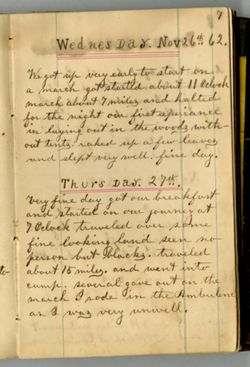 7
Wednes Day. Nov 26th 62.
We got up very early to start on
a march got started about 11 Oclock
march about 7 miles and halted
for the night our first experiance
in laying out in the woods with-
out tents, raked up a few leaves
and slept very well. fine day.
Thurs Day. 27th.
Very fine day got our breakfast
and started on our journey at
7 Oclock traveled over some
fine looking land seen no
person but Blacks. traveled
about 15 miles. and went into
camp. several gave out on the
march I rode in the Ambulance
as I was very unwell.
to